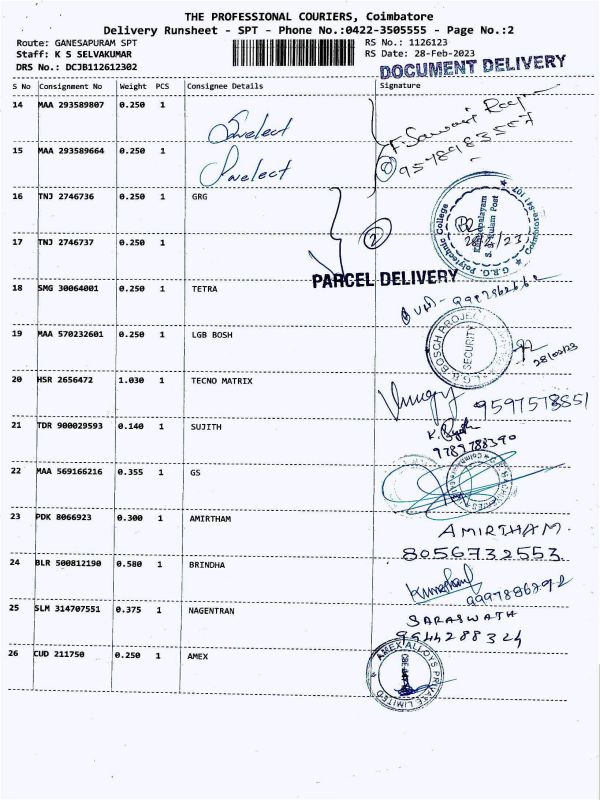 THE PROFESSIONAL COURIERS, Coimbatore
Delivery Runsheet - SPT - Phone No.:0422-3505555 - Page No.:2
Route: GANESAPURAM SPT RS No.: 1126123
Staff: K S SELVAKUMAR RS Date: 28-Feb-2023
DRS No.: DCJB112612302 DOCUMENT DELIVERY
S No Consignment No Weight PCS Consignee Details Signature
14 MAA 293589807 0.250 1
15 MAA 293589664 0.250 1
16 TNJ 2746736 0.250 1 GRG
G.R.G. Polytechnic College
17 TNJ 2746737 0.250 1 2
PARCEL DELIVERY
18 SMG 30064001 0.250 1 TETRA
19 MAA 570232601 0.250 1 LGB BOSH
SECURITY
28/02/23
20 HSR 2656472 1.030 1 TECNO MATRIX
9597578551
21 TDR 900029593 0.140 1 SUJITH
9789788390
22 MAA 569166216 0.355 1 GS
23 PDK 8066923 0.300 1 AMIRTHAM
AMIRTHAM.
8056732553
24 BLR 500812190 0.580 1 BRINDHA
25 SLM 314707551 0.375 1 NAGENTRAN
SARASWATH
9944288324
26 CUD 211750 0.250 1 AMEX
AMEX ALLOYS PRIVATE LIMITED